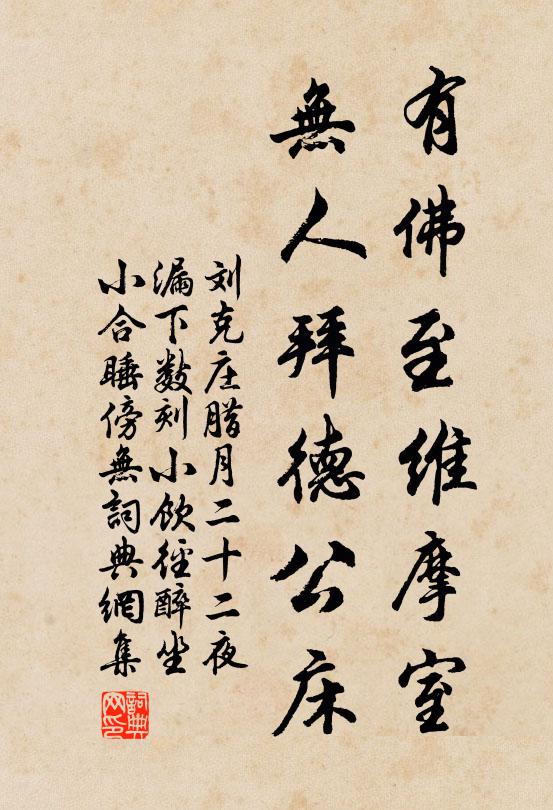 有佛至維摩室
無人拜德公床
刘克庄腊月二十二夜
漏下数刻小飲徑醉坐
小合睡傍無詞典網集
詞典网印